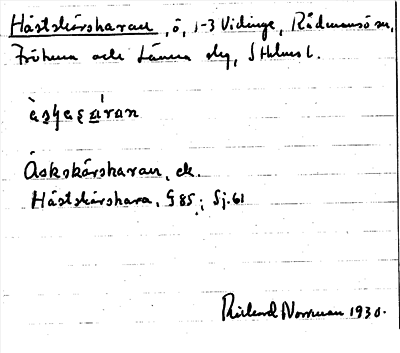 Hästskärsharan, ö, i-3 Vidinge, Rådmansö sn,
Fröhuna och Länna slg, Sthlms l.
Äskskärsharan, ek.
Hästskärshara, G 85; Sj. 61
Rickard Norrman 1930.